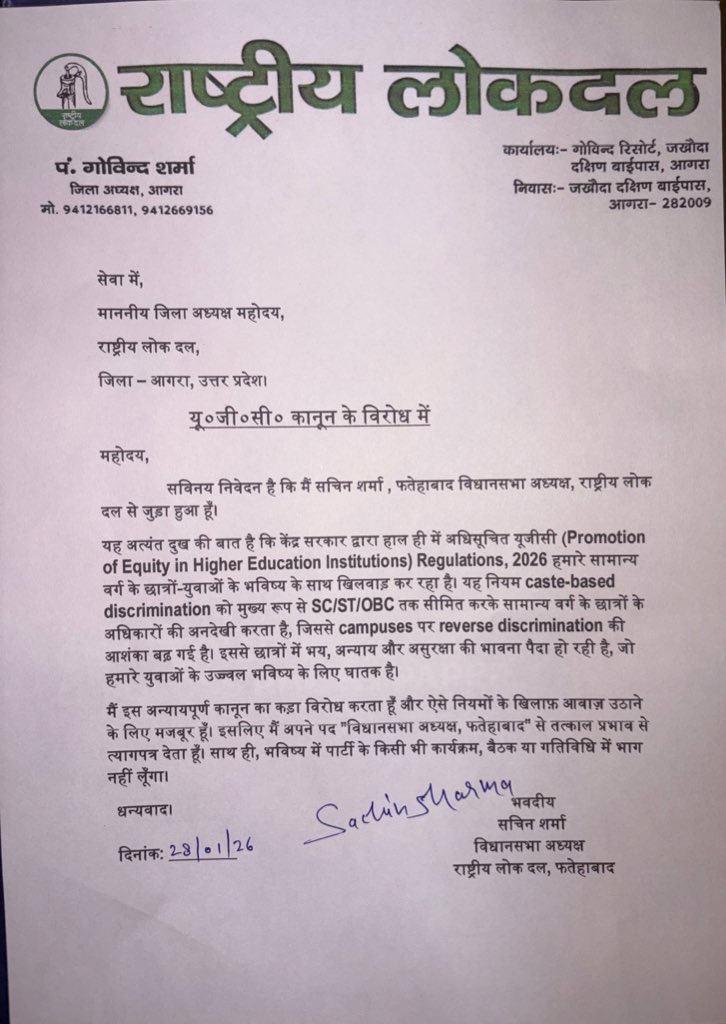 राष्ट्रीय लोकदल
राष्ट्रीय
लोकदल
पं. गोविन्द शर्मा
जिला अध्यक्ष, आगरा
मो. 9412166811, 9412669156
कार्यालयः- गोविन्द रिसोर्ट, जखौदा
दक्षिण बाईपास, आगरा
निवासः- जखौदा दक्षिण बाईपास,
आगरा- 282009
सेवा में,
माननीय जिला अध्यक्ष महोदय,
राष्ट्रीय लोक दल,
जिला – आगरा, उत्तर प्रदेश।
यू०जी०सी० कानून के विरोध में
महोदय,
सविनय निवेदन है कि मैं सचिन शर्मा , फतेहाबाद विधानसभा अध्यक्ष, राष्ट्रीय लोक
दल से जुड़ा हुआ हूँ।
यह अत्यंत दुख की बात है कि केंद्र सरकार द्वारा हाल ही में अधिसूचित यूजीसी (Promotion
of Equity in Higher Education Institutions) Regulations, 2026 हमारे सामान्य
वर्ग के छात्रों-युवाओं के भविष्य के साथ खिलवाड़ कर रहा है। यह नियम caste-based
discrimination को मुख्य रूप से SC/ST/OBC तक सीमित करके सामान्य वर्ग के छात्रों के
अधिकारों की अनदेखी करता है, जिससे campuses पर reverse discrimination की
आशंका बढ़ गई है। इससे छात्रों में भय, अन्याय और असुरक्षा की भावना पैदा हो रही है, जो
हमारे युवाओं के उज्ज्वल भविष्य के लिए घातक है।
मैं इस अन्यायपूर्ण कानून का कड़ा विरोध करता हूँ और ऐसे नियमों के खिलाफ़ आवाज़ उठाने
के लिए मजबूर हूँ। इसलिए मैं अपने पद "विधानसभा अध्यक्ष, फतेहाबाद" से तत्काल प्रभाव से
त्यागपत्र देता हूँ। साथ ही, भविष्य में पार्टी के किसी भी कार्यक्रम, बैठक या गतिविधि में भाग
नहीं लूँगा।
धन्यवाद।
Sachin Sharma
भवदीय
सचिन शर्मा
दिनांक: 28/01/26
विधानसभा अध्यक्ष
राष्ट्रीय लोक दल, फतेहाबाद